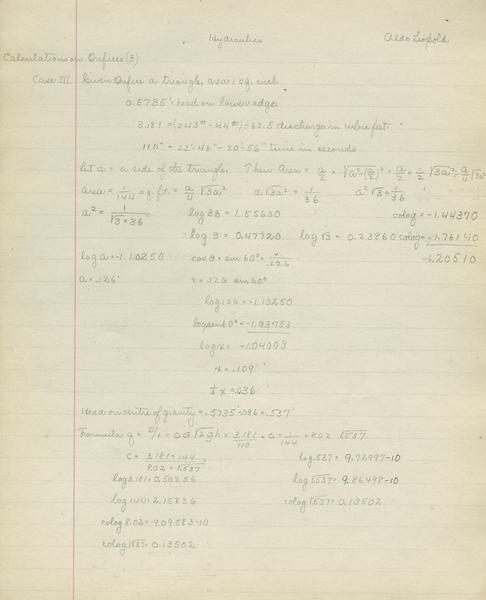 Hydraulics
Aldo Leopold
Calculations on Orifices (3)
Case III Given Orifice a triangle, area 1 sq. inch
0.5735' head on lower edge
3.181 = (243# - 44#) ÷ 62.5 discharge in cubic feet.
110" = 22'-46" - 20'-56" time in seconds
Let a = a side of the triangle. Then Area = a/2 × √a²-(a/2)² = a/2 × 1/2 √3a² = a/4 √3a²
area = 1/144 sq. ft. = a/4 √3a² a√3a² = 1/36 a²√3 = 1/36
a² = 1/(√3 × 36) log 36 = 1.55630 colog = -1.44370
log 3 = 0.47720 log √3 = 0.23860 colog = -1.76140
log a = -1.10250 cos θ = sin 60° = x/.126 -1.20510
a = .126' x = .126 sin 60°
log 126 = -1.10250
log sin 60° = -1.93753
log x = -1.04003
x = .109'
1/3 x = .036
Head on centre of gravity = .5735 - .036 = .537'
Formula q = D/t = ca√2gh = 3.181/110 = c × 1/144 × 8.02 √.537
c = 3.181 × 144 / 8.02 × √.537 log .537 = 9.72997-10
log 3.181 = 0.50256 log √.537 = 9.86498-10
log 144 = 2.15836 colog √.537 = 0.13502
colog 8.02 = 9.09583-10
colog √.537 = 0.13502